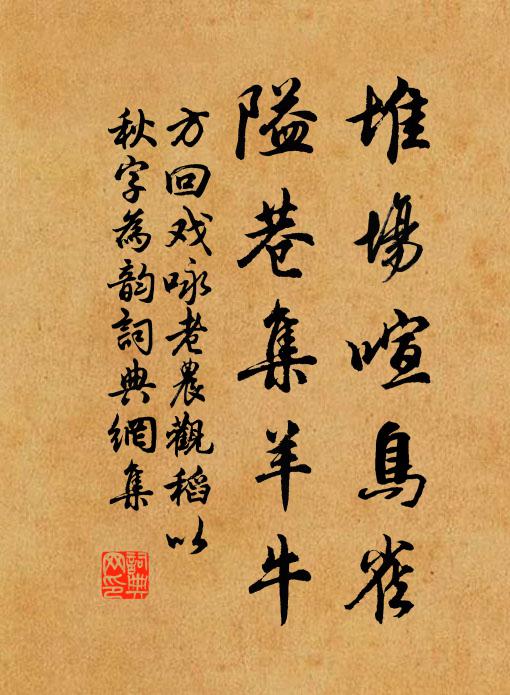 堆場喧鳥雀
隘巷集羊牛
方回戏咏老農觀稻以
秋字為韵詞典網集
詞典网印